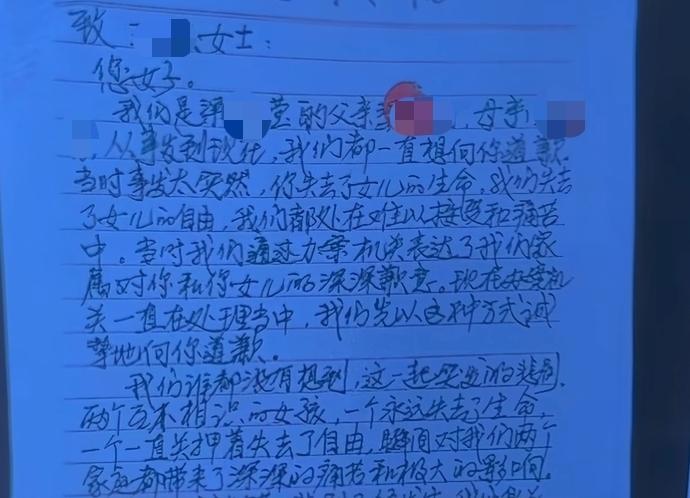 致: 女士:
您好。
我们是薄 萱的父亲 , 母亲
从事发到现在,我们都一直想向你道歉
当时事发太突然,你失去了女儿的生命,我们失去
了女儿的自由,我们都处在难以接受和痛苦
中。当时我们通过办案机关表达了我们家
属对你和你女儿的深深歉意。现在办案机
关一直在处理当中,我们先以这种方式诚
挚地向你道歉。
我们谁都没有想到,这一起突发的悲剧,
两个互不相识的女孩,一个永远失去了生命,
一个一直关押着失去了自由,瞬间对我们两个
家庭都带来了深深的痛苦和极大的影响。